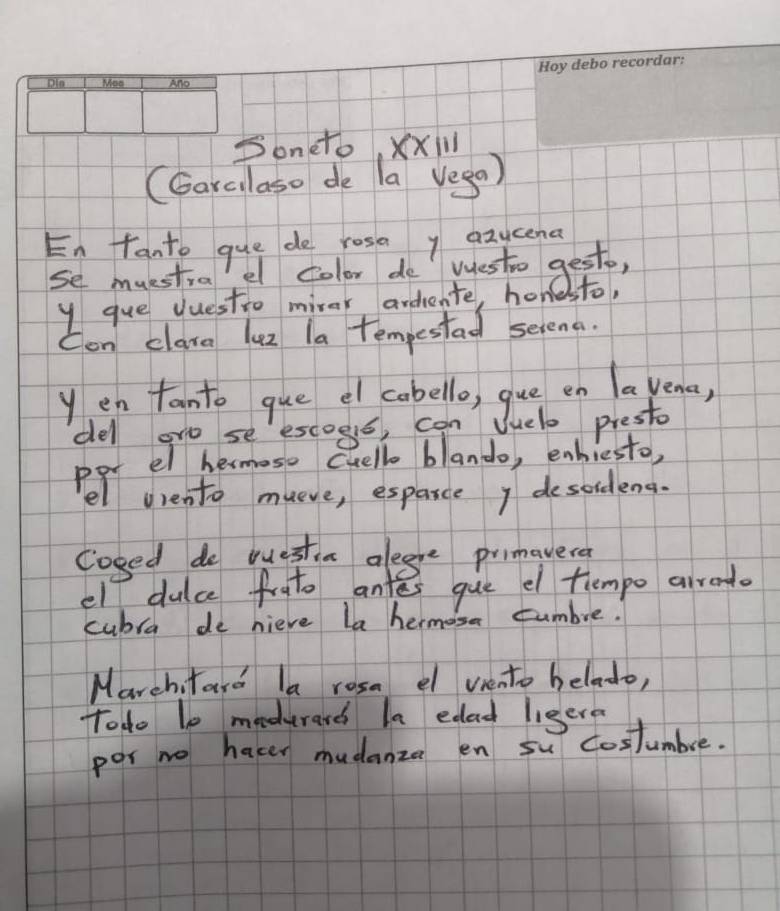 Hoy debo recordar:
Día Mes Año
Soneto XXIII
(Garcilaso de la Vega)
En tanto que de rosa y azucena
se muestra el color de vuestro gesto,
y que vuestro mirar ardiente, honesto,
con clara luz la tempestad serena.
y en tanto que el cabello, que en la vena,
del oro se escogió, con vuelo presto
por el hermoso cuello blando, enhiesto,
el viento mueve, esparce y desordena.
Coged de vuestra alegre primavera
el dulce fruto antes que el tiempo airado
cubra de nieve la hermosa cumbre.
Marchitará la rosa el viento helado,
Todo lo madurará la edad ligera
por no hacer mudanza en su costumbre.